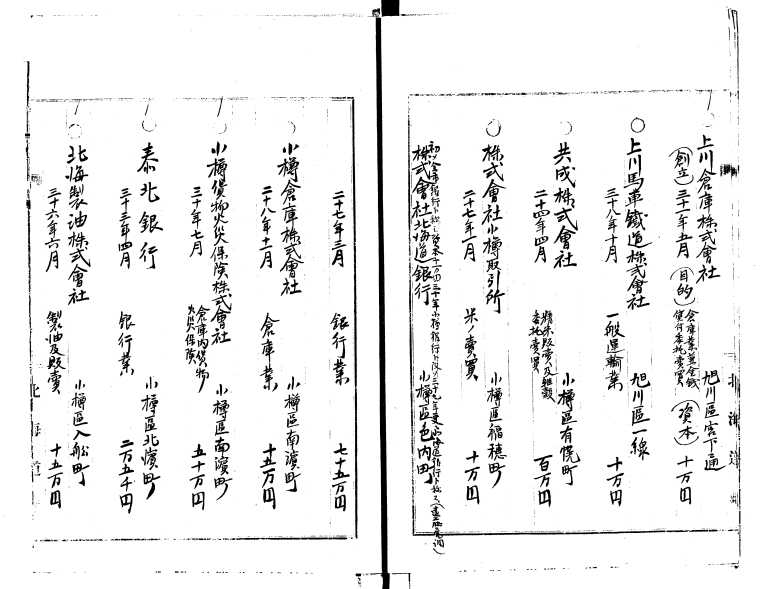 ○上川倉庫株式會社 旭川區宮下通
創立 三十年五月 目的 倉庫業並金錢貸付委托賣買 資本 十万円
○上川馬車鐵道株式會社 旭川區一線
三十八年十月 一般運輸業 十万円
○共成株式會社 小樽區有幌町
二十四年四月 精米販賣及雑穀委托賣買 百万円
○株式會社小樽取引所 小樽區稲穂町
二十七年二月 米ノ賣買 十万円
株式會社北海道銀行 小樽區色内町
二十七年三月 銀行業 七十五万円
○小樽倉庫株式會社 小樽區南濵町
二十八年十二月 倉庫業 十五万円
○小樽貨物火災保険株式會社 小樽區南濵町
三十年七月 倉庫内貨物火災保険 五十万円
○泰北銀行 小樽區北濵町
三十三年四月 銀行業 二万五千円
○北海製油株式會社 小樽區入船町
三十六年六月 製油及販賣 十五万円
北海道